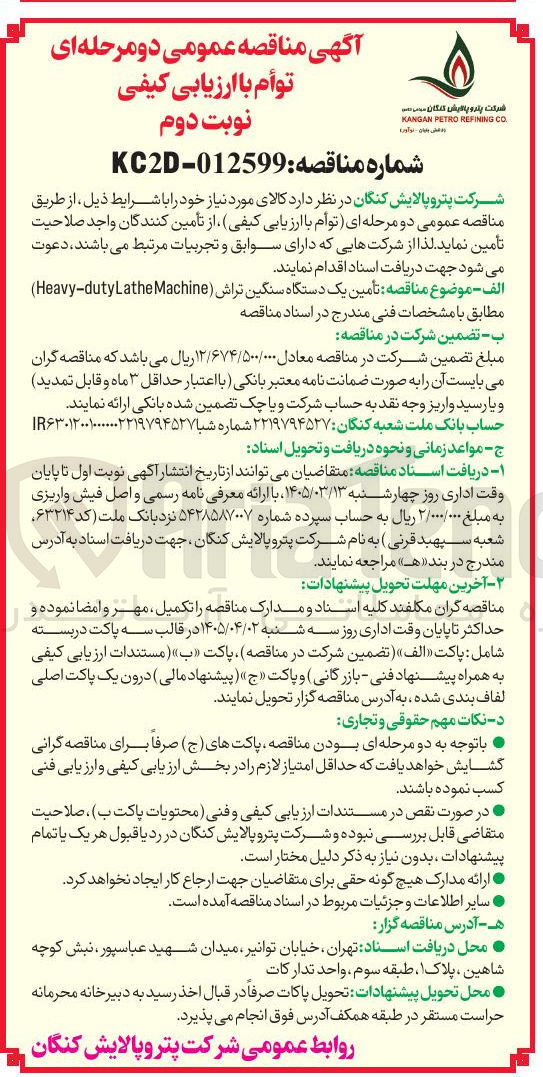 آگهی مناقصه عمومی دو مرحله‌ای
توأم با ارزیابی کیفی
نوبت دوم
شرکت پتروپالایش کنگان
KANGAN PETRO REFINING CO.
(دانش بنیان - نوآور)
شماره مناقصه: KC2D-012599
شرکت پتروپالایش کنگان در نظر دارد کالای مورد نیاز خود را با شرایط ذیل، از طریق
مناقصه عمومی دو مرحله‌ای (توأم با ارزیابی کیفی)، از تأمین کنندگان واجد صلاحیت
تأمین نماید. لذا از شرکت‌هایی که دارای سوابق و تجربیات مرتبط می باشند، دعوت
می شود جهت دریافت اسناد اقدام نمایند.
الف-موضوع مناقصه: تأمین یک دستگاه سنگین تراش (Heavy-duty Lathe Machine)
مطابق با مشخصات فنی مندرج در اسناد مناقصه
ب- تضمین شرکت در مناقصه:
مبلغ تضمین شرکت در مناقصه معادل ۱۲/۶۷۴/۵۰۰/۰۰۰ ریال می باشد که مناقصه گران
می بایست آن را به صورت ضمانت نامه معتبر بانکی (با اعتبار حداقل ۳ ماه و قابل تمدید)
و یا رسید واریز وجه نقد به حساب شرکت و یا چک تضمین شده بانکی ارائه نمایند.
حساب بانک ملت شعبه کنگان: ۲۲۱۹۷۹۴۵۲۷ شماره شبا IR۶۳۰۱۲۰۰۱۰۰۰۰۰۰۲۲۱۹۷۹۴۵۲۷
ج- مواعد زمانی و نحوه دریافت و تحویل اسناد:
۱- دریافت اسناد مناقصه: متقاضیان می توانند از تاریخ انتشار آگهی نوبت اول تا پایان
وقت اداری روز چهارشنبه ۱۴۰۵/۰۳/۱۳، با ارائه معرفی نامه رسمی و اصل فیش واریزی
به مبلغ ۲/۰۰۰/۰۰۰ ریال به حساب سپرده شماره ۵۴۲۸۵۸۷۰۰۷ نزد بانک ملت (کد ۶۳۲۱۴،
شعبه سپهبد قرنی) به نام شرکت پتروپالایش کنگان، جهت دریافت اسناد به آدرس
مندرج در بند «هـ» مراجعه نمایند.
۲-آخرین مهلت تحویل پیشنهادات:
مناقصه گران مکلفند کلیه اسناد و مدارک مناقصه را تکمیل، مهر و امضا نموده و
حداکثر تا پایان وقت اداری روز سه شنبه ۱۴۰۵/۰۴/۰۲ در قالب سه پاکت دربسته
شامل: پاکت «الف» (تضمین شرکت در مناقصه)، پاکت «ب» (مستندات ارزیابی کیفی
به همراه پیشنهاد فنی - بازرگانی) و پاکت «ج» (پیشنهاد مالی) درون یک پاکت اصلی
لفاف بندی شده، به آدرس مناقصه گزار تحویل نمایند.
د-نکات مهم حقوقی و تجاری:
● با توجه به دو مرحله‌ای بودن مناقصه، پاکت های (ج) صرفاً برای مناقصه گرانی
گشایش خواهد یافت که حداقل امتیاز لازم را در بخش ارزیابی کیفی و ارزیابی فنی
کسب نموده باشند.
● در صورت نقص در مستندات ارزیابی کیفی و فنی (محتویات پاکت ب)، صلاحیت
متقاضی قابل بررسی نبوده و شرکت پتروپالایش کنگان در رد یا قبول هر یک یا تمام
پیشنهادات، بدون نیاز به ذکر دلیل مختار است.
● ارائه مدارک هیچ گونه حقی برای متقاضیان جهت ارجاع کار ایجاد نخواهد کرد.
● سایر اطلاعات و جزئیات مربوط در اسناد مناقصه آمده است.
هـ-آدرس مناقصه گزار:
● محل دریافت اسناد: تهران، خیابان توانیر، میدان شهید عباسپور، نبش کوچه
شاهین، پلاک ۱، طبقه سوم، واحد تدارکات
● محل تحویل پیشنهادات: تحویل پاکات صرفاً در قبال اخذ رسید به دبیرخانه محرمانه
حراست مستقر در طبقه همکف آدرس فوق انجام می پذیرد.
روابط عمومی شرکت پتروپالایش کنگان